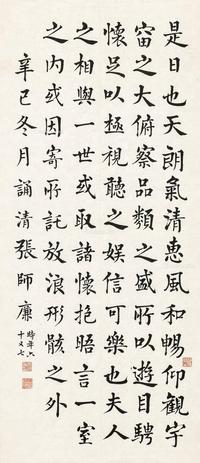 是日也天朗氣清惠風和暢仰觀宇
宙之大俯察品類之盛所以遊目騁
懷足以極視聽之娛信可樂也夫人
之相與一世或取諸懷抱晤言一室
之內或因寄所託放浪形骸之外
辛巳冬月誦清張師廉
時年六
十又七